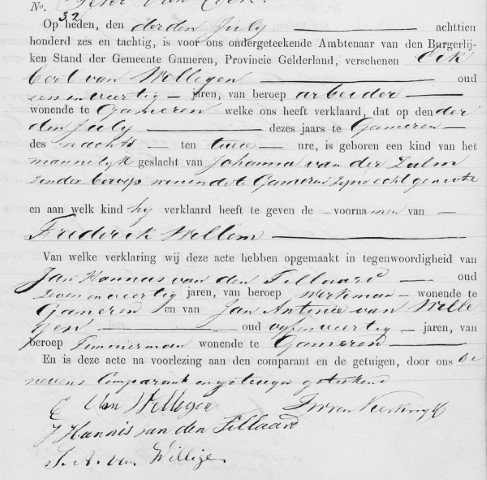 No. 32
Op heden, den derden July achttien
honderd zes en tachtig, is voor ons ondergeteekende Ambtenaar van den Burgerlij-
ken Stand der Gemeente Gameren, Provincie Gelderland, verschenen Eek
bert van Willegen oud
een en veertig jaren, van beroep arbeider
wonende te Gameren welke ons heeft verklaard, dat op den der
den July dezes jaars te Gameren
des nachts ten twee ure, is geboren een kind van het
mannelijk geslacht van Johanna van der Zalm
zonder beroep wonende te Gameren zijne echtgenoote
en aan welk kind hij verklaard heeft te geven de voornamen van
Frederik Willem
Van welke verklaring wij deze acte hebben opgemaakt in tegenwoordigheid van
Jan Hannis van den Tillaard oud
zeven en veertig jaren, van beroep werkman wonende te
Gameren en van Jan Antonie van Wille
gen oud veertig jaren, van
beroep Timmerman wonende te Gameren
En is deze acte na voorlezing aan den comparant en de getuigen, door ons be
nevens Comparant en getuigen geteekend
E van Willegen
J Hannis van den Tillaard
J. A. van Willige